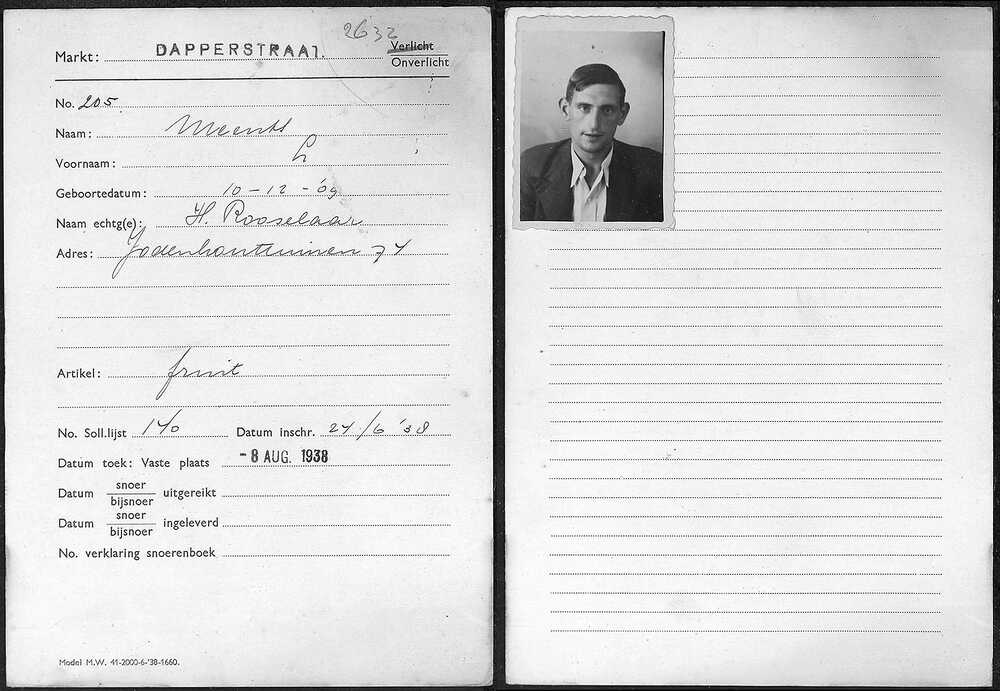 2632
Markt: DAPPERSTRAAT. Verlicht
Onverlicht
No. 205
Naam:
Voornaam: L
Geboortedatum: 10-12-'09
Naam echtg(e): H. Rooselaar
Adres: Jodenhouttuinen 71
Artikel: fruit
No. Soll.lijst 170 Datum inschr. 27/6 '38
Datum toek: Vaste plaats -8 AUG. 1938
Datum snoer/bijsnoer uitgereikt
Datum snoer/bijsnoer ingeleverd
No. verklaring snoerenboek
Model M.W. 41-2000-6-'38-1660.